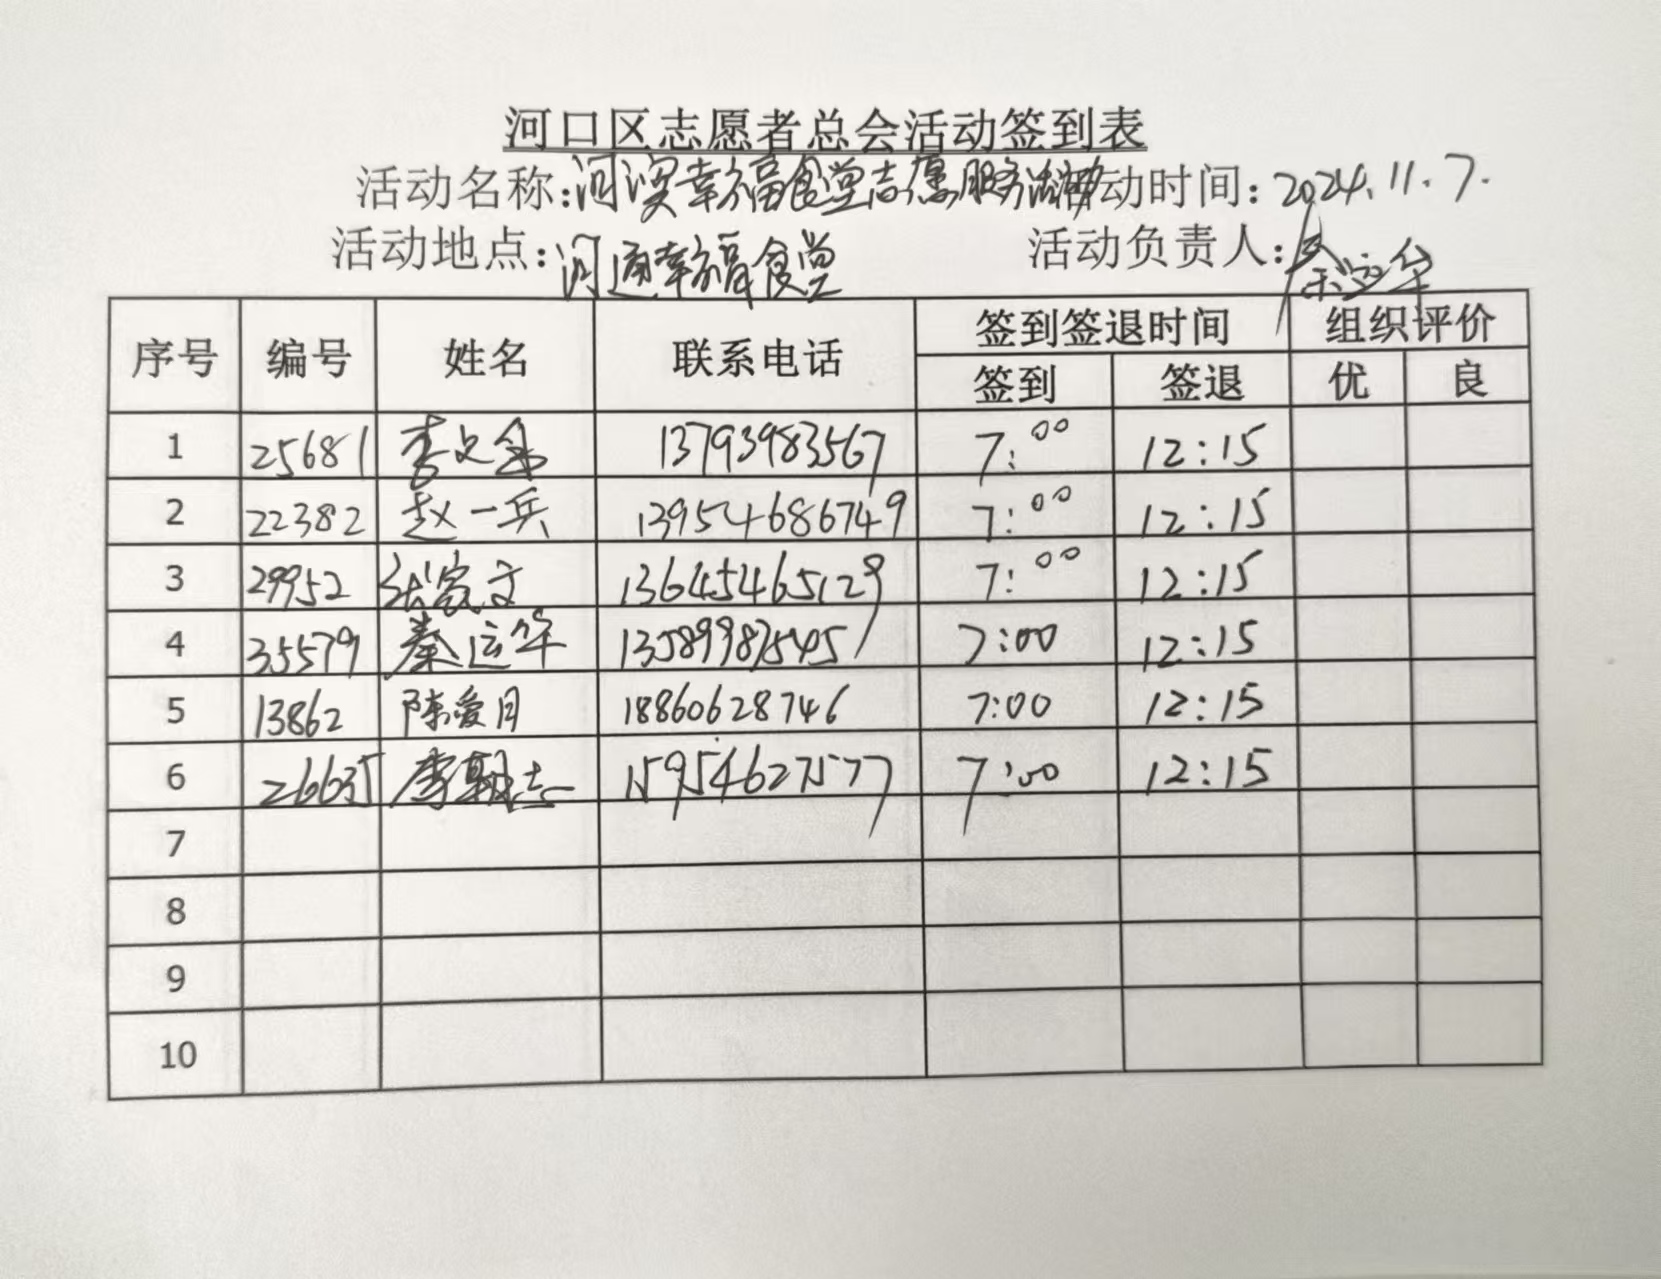 河口区志愿者总会活动签到表
活动名称:河滨幸福食堂志愿服务活动 活动时间:2024.11.7.
活动地点:河通幸福食堂 活动负责人:秦运华
序号 编号 姓名 联系电话 签到签退时间 组织评价
签到 签退 优 良
1 25681 李文 13793983567 7:00 12:15
2 22382 赵一兵 13954686749 7:00 12:15
3 29952 张家文 13645465129 7:00 12:15
4 35579 秦运华 13589987545 7:00 12:15
5 13862 陈爱月 18860628746 7:00 12:15
6 26635 李朝志 15954627577 7:00 12:15
7
8
9
10